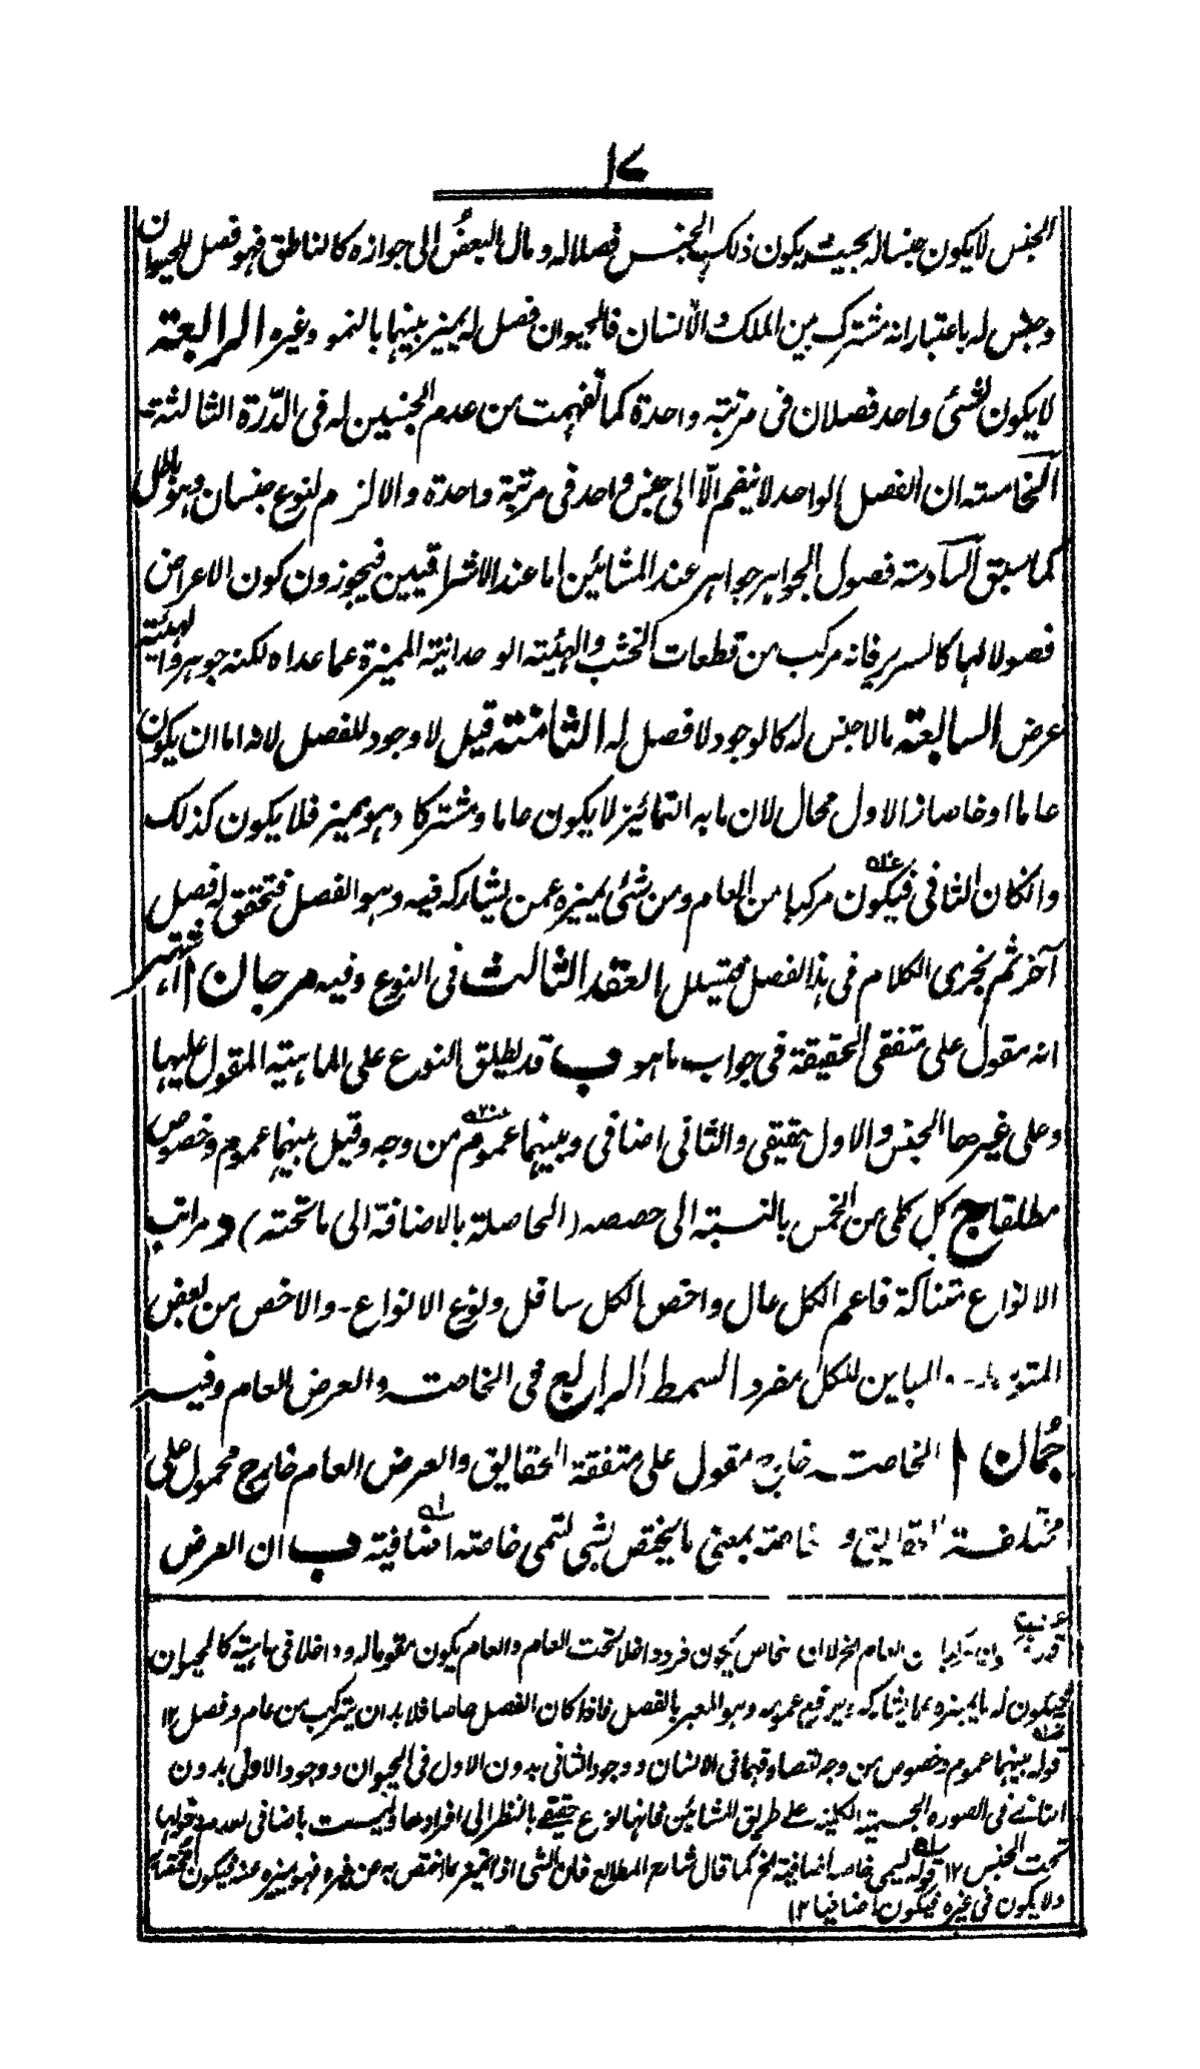 ١٧
الجنس لا يكون جنسا له بحيث يكون ذلك الجنس فصلا له ومال البعض الى جوازه كالناطق فهو فصل للحيوان
وجنس له باعتبار انه مشترك بين الملك والانسان فالحيوان فصل له يميز بينهما بالنمو وغيره الرابعة
لا يكون لشئ واحد فصلان فى مرتبة واحدة كما تفهمت من عدم الجنسين له فى الدّرة الثالثة
الخامسة ان الفصل الواحد لا ينضم الّا الى جنس واحد فى مرتبة واحدة والا لزم لنوع جنسان وهو باطل
كما سبق السادسة فصول الجواهر جواهر عند المشائين اما عند الاشراقيين فيجوزون كون الاعراض
فصولا لها كالسرير فانه مركب من قطعات الخشب والهيئة الوحدانية المميزة عما عداه لكنه جوهر والهيئة
عرض السابعة مالا جنس له كالوجود لا فصل له الثامنة قيل لا وجود للفصل لانه اما ان يكون
عاما او خاصا ز الاول محال لان ما به التمائيز لا يكون عاما ومشتركا وهو مميز فلا يكون كذلك
وان كان الثانى فيكون مركبا من العام ومن شئ يميزه عمن يشاركه فيه وهو الفصل فتحقق له فصل
آخر ثم نجرى الكلام فى هذا الفصل فيتسلسل العقد الثالث فى النوع وفيه مرجان ا اشتهر
انه مقول على متفقى الحقيقة فى جواب ما هو ب قد يطلق النوع على الماهية المقول عليها
وعلى غيرها الجنس والاول حقيقى والثانى اضافى وبينهما عموم من وجه وقيل بينهما عموم وخصوص
مطلقا ج كل كلى من الخمس بالنسبة الى حصصه (الحاصلة بالاضافة الى ما تحته) د مراتب
الانواع متناكة فاعم الكل عال واخص الكل سافل ونوع الانواع - والاخص من بعض
المباين للكل مفرد السمط الرابع فى الخاصة والعرض العام وفيه
جُمان ا الخاصة خارج مقول على متفقة الحقايق والعرض العام خارج محمول على
مختلفة الحقايق و خاصة بمعنى ما يختص لشى تسمى خاصة اضافية ب ان العرض
العام لان الخاص يكون فردا داخلا تحت العام والعام يكون مقوما له وداخلا فى ماهية كالحيوان
فيكون له ما يميزه عما يشاركه ويرفع عمومه وهو المعبر بالفصل فاذا كان الفصل خاصا فلا بد ان يتركب من عام وفصل ١٢
قوله بينهما عموم وخصوص من وجه لتصادقهما فى الانسان ووجود الثانى بدون الاول فى الحيوان ووجود الاولى بدون
الثانى فى الصورة الجسمية الكلية على طريق المشائين فانها نوع حقيقى بالنظر الى افرادها وليست باضافى لعدم دخولها
تحت الجنس ١٢ قوله تسمى خاصة اضافية الخ كما قال شارح المطالع فان الشى اذا
ولا يكون فى غيره فيكون اضافيا ١٢